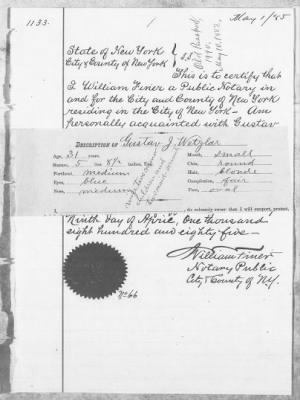 1133.
1
May 1/85
Old Passport
May 10, 1883.
State of New York
City & County of New York } S.S.
This is to certify that
I William Finer a Public Notary in
and for the City and County of New York
residing in the City of New York – Am
personally acquainted with Gustav
DESCRIPTION OF Gustav J. Wetzlar
Age, 31 years. Mouth, small
Stature, 5 feet 8½ inches, Eng. Chin, round
Forehead, medium Hair, blonde
Eyes, blue Complexion, fair
Nose, medium Face, oval
I, do solemnly swear that I will support, protect,
Ninth day of April, One thousand
eight hundred and eighty five –
William Finer
Notary Public
City & County of N.Y.
No 66